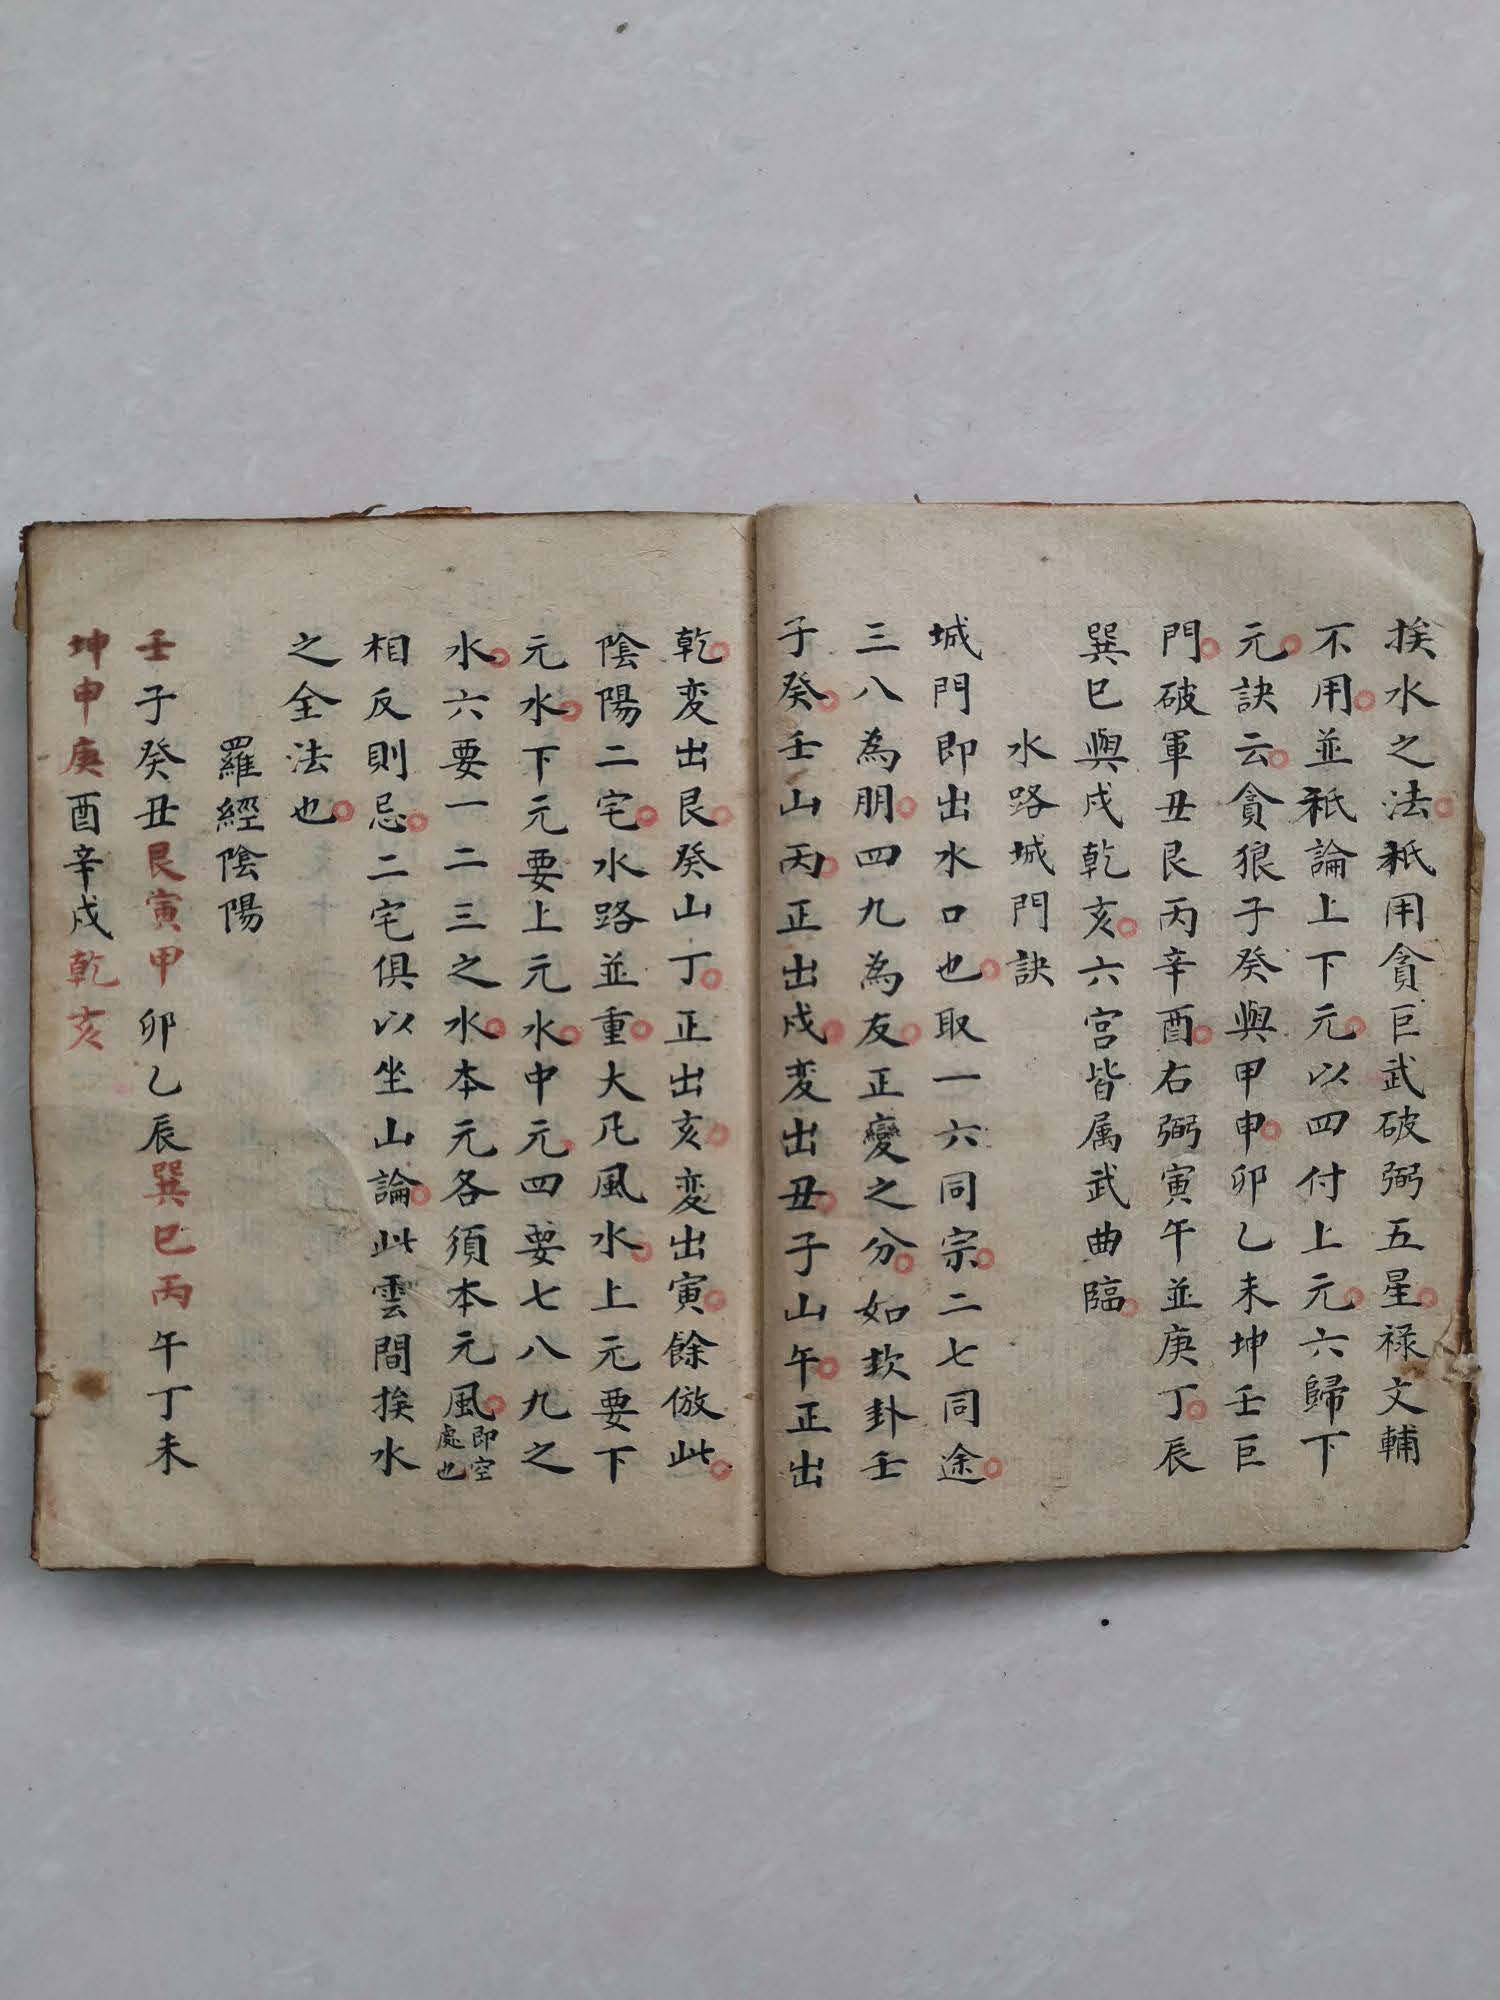 挨水之法秖用貪巨武破弼五星禄文輔
不用並秖論上下元以四付上元六歸下
元訣云貪狼子癸與甲申卯乙未坤壬巨
門破軍丑艮丙辛酉右弼寅午並庚丁辰
巽巳與戍乾亥六宮皆属武曲臨
水路城門訣
城門即出水口也取一六同宗二七同途
三八為朋四九為友正變之分如坎卦壬
子癸壬山丙正出戍変出丑子山午正出
乾変出艮癸山丁正出亥変出寅餘倣此
陰陽二宅水路並重大凡風水上元要下
元水下元要上元水中元四要七八九之
水六要一二三之水本元各須本元風即空處也
相反則忌二宅俱以坐山論此雲間挨水
之全法也
羅經陰陽
壬子癸丑艮寅甲卯乙辰巽巳丙午丁未
坤申庚酉辛戍乾亥